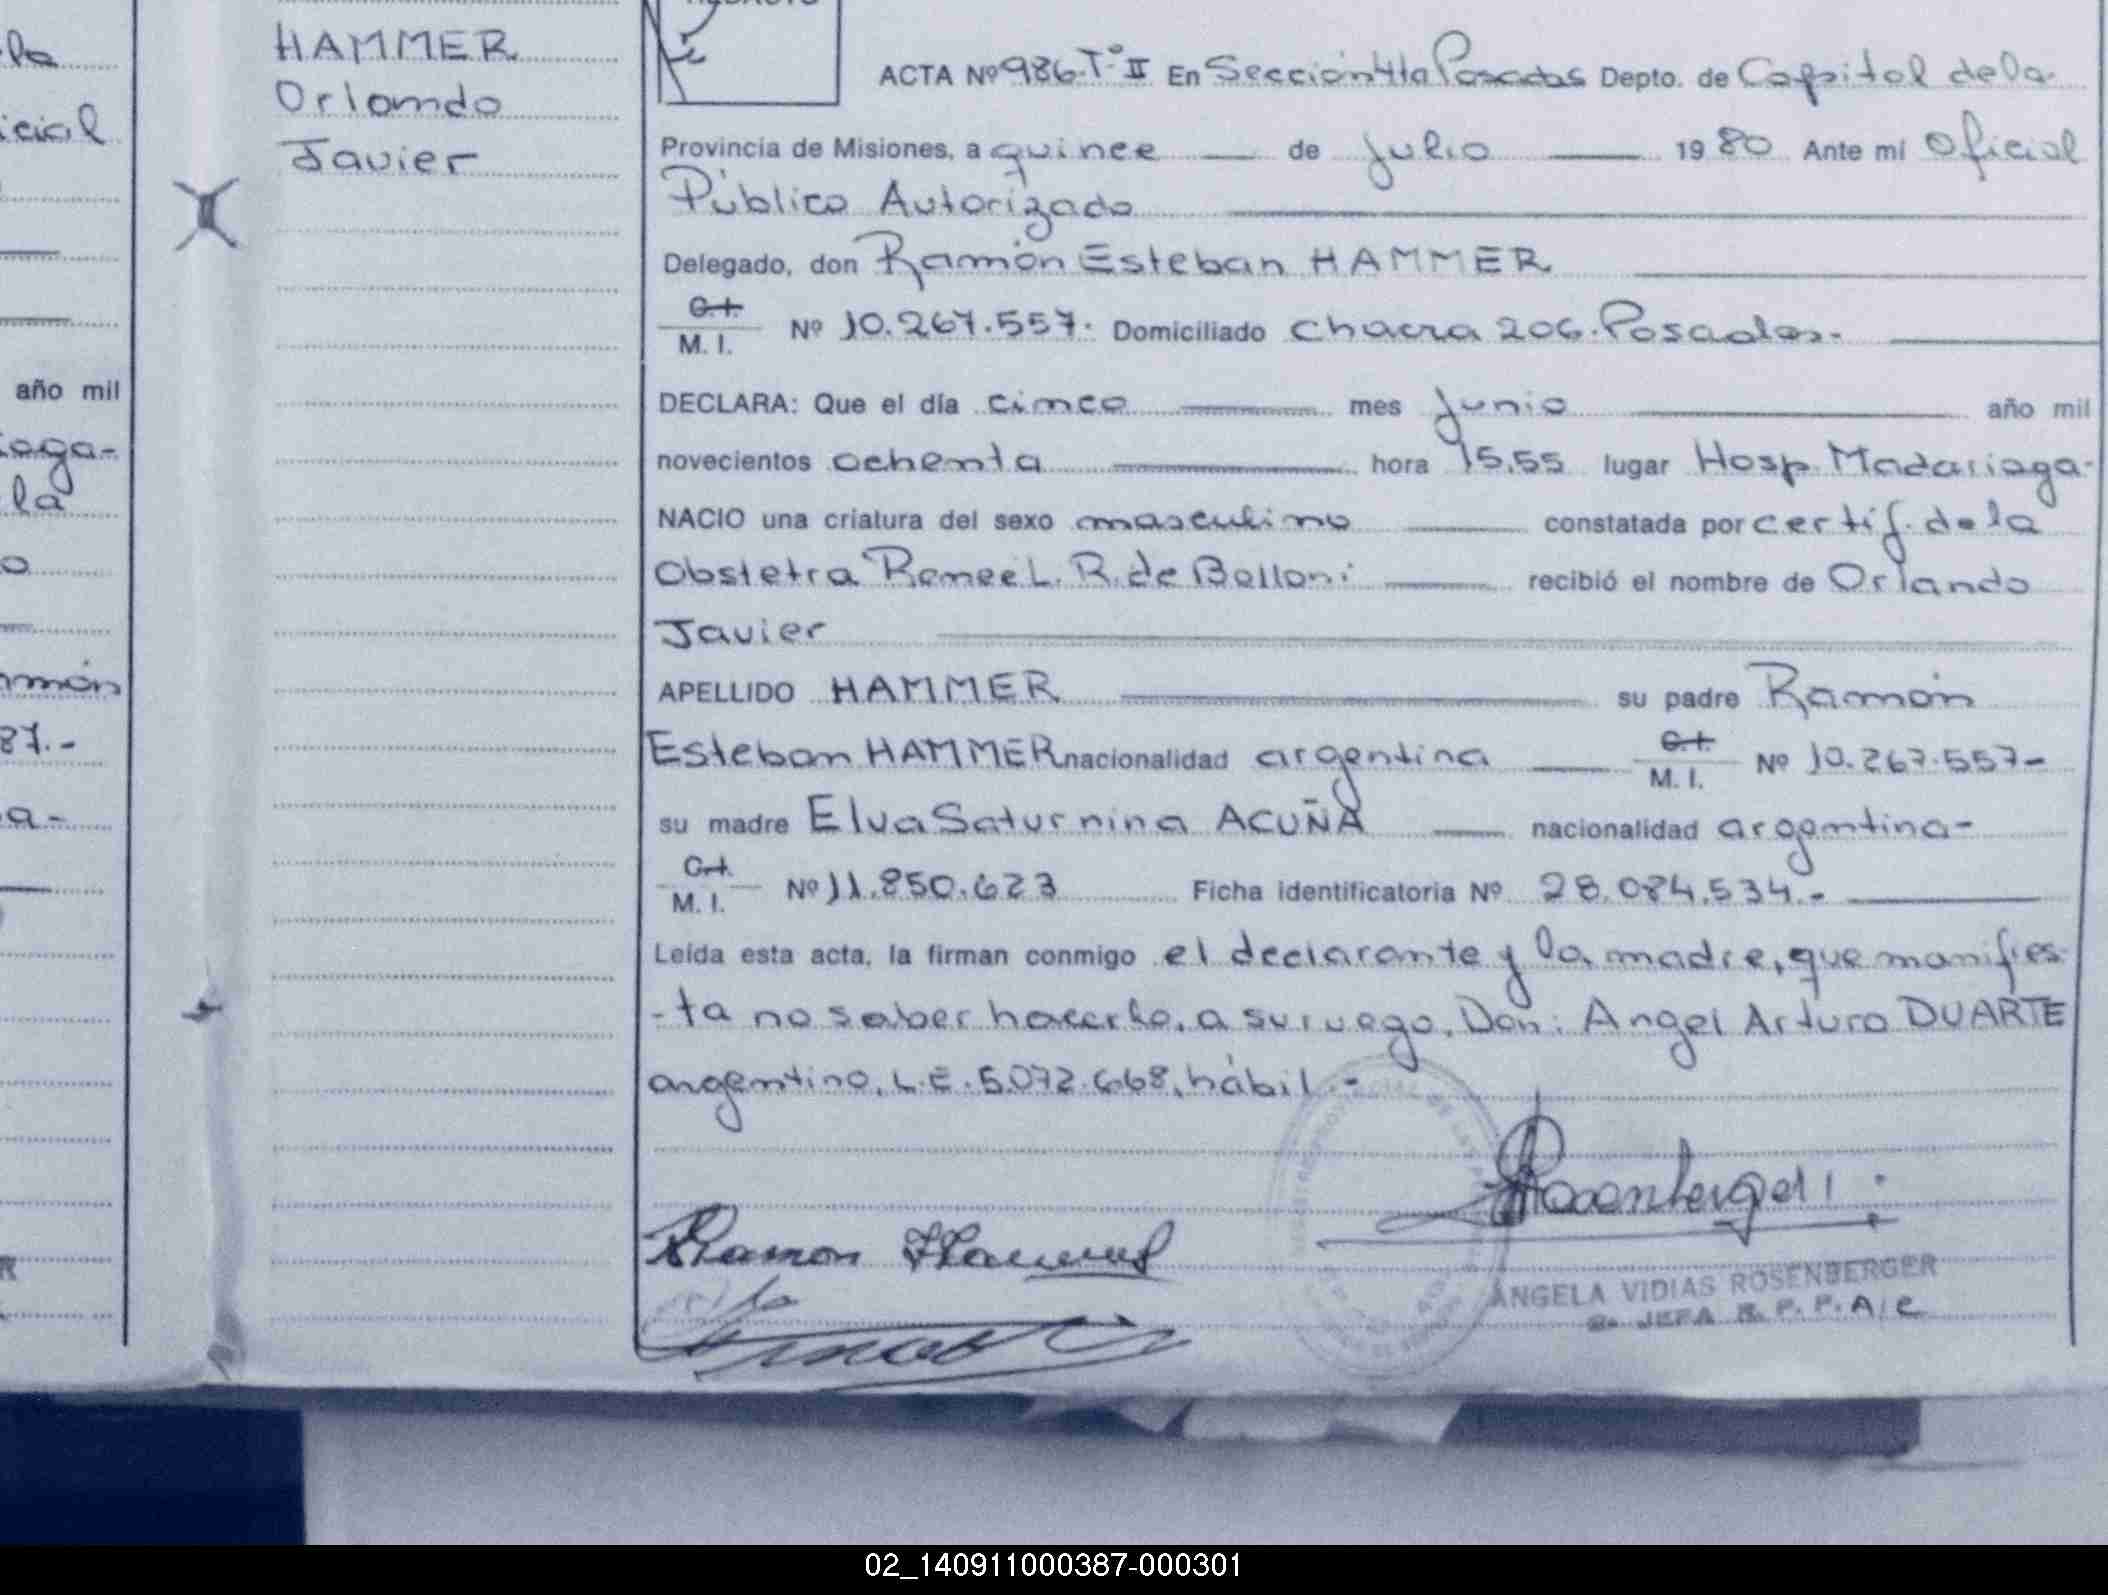 HAMMER
Orlando
Javier
ACTA Nº 986-Tº II En Sección 4ta Posadas Depto. de Capital de la
Provincia de Misiones, a quince de julio 1980 Ante mí Oficial
Público Autorizado
Delegado, don Ramón Esteban HAMMER
C.I.
M. I. Nº 10.267.557. Domiciliado Chacra 206. Posadas.-
DECLARA: Que el día cinco mes junio año mil
novecientos ochenta hora 15,55 lugar Hosp. Madariaga-
NACIO una criatura del sexo masculino constatada por certif. de la
Obstetra Renee L. R. de Belloni recibió el nombre de Orlando
Javier
APELLIDO HAMMER su padre Ramón
Esteban HAMMER nacionalidad argentina C.I. M. I. Nº 10.267.557-
su madre Elva Saturnina ACUÑA nacionalidad argentina-
C.I.
M. I. Nº 11.850.623 Ficha identificatoria Nº 28.084.534.-
Leída esta acta, la firman conmigo el declarante y la madre, que manifies-
-ta no saber hacerlo, a su ruego, Don: Angel Arturo DUARTE
argentino, L.E. 5.072.668, hábil.-
Ramon Hammer
ANGELA VIDIAS ROSENBERGER
JEFA R. P. P. A/C
icial
año mil
la
món
87.-
a-
02_140911000387-000301